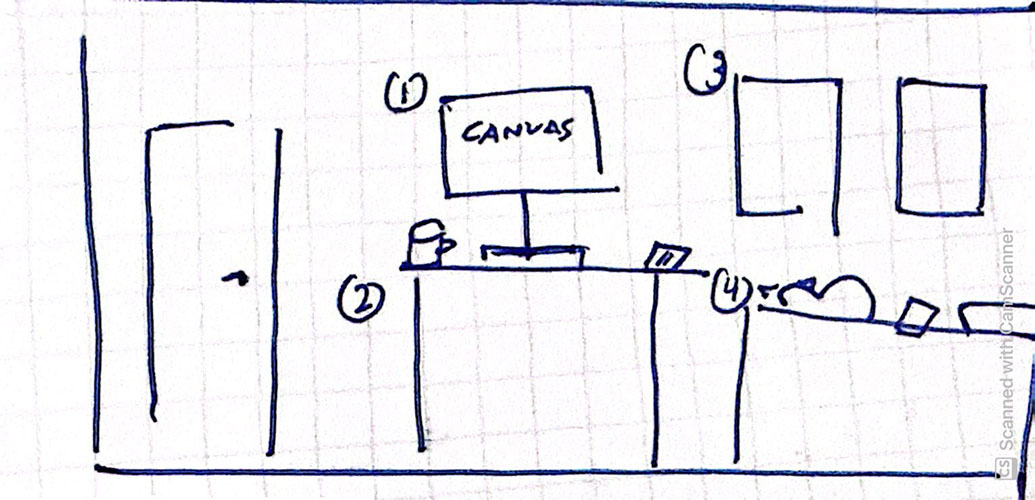 ①
CANVAS
③
②
④
CS Scanned with CamScanner